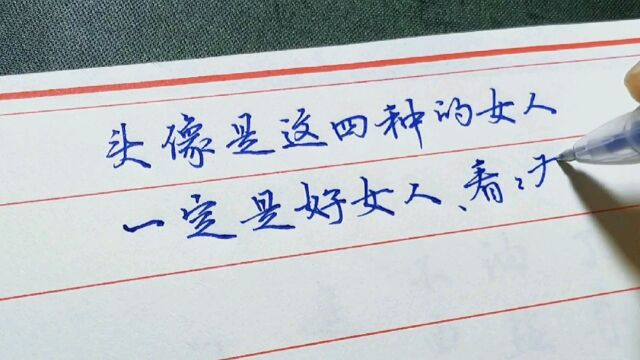 头像是这四种的女人
一定是好女人、看: